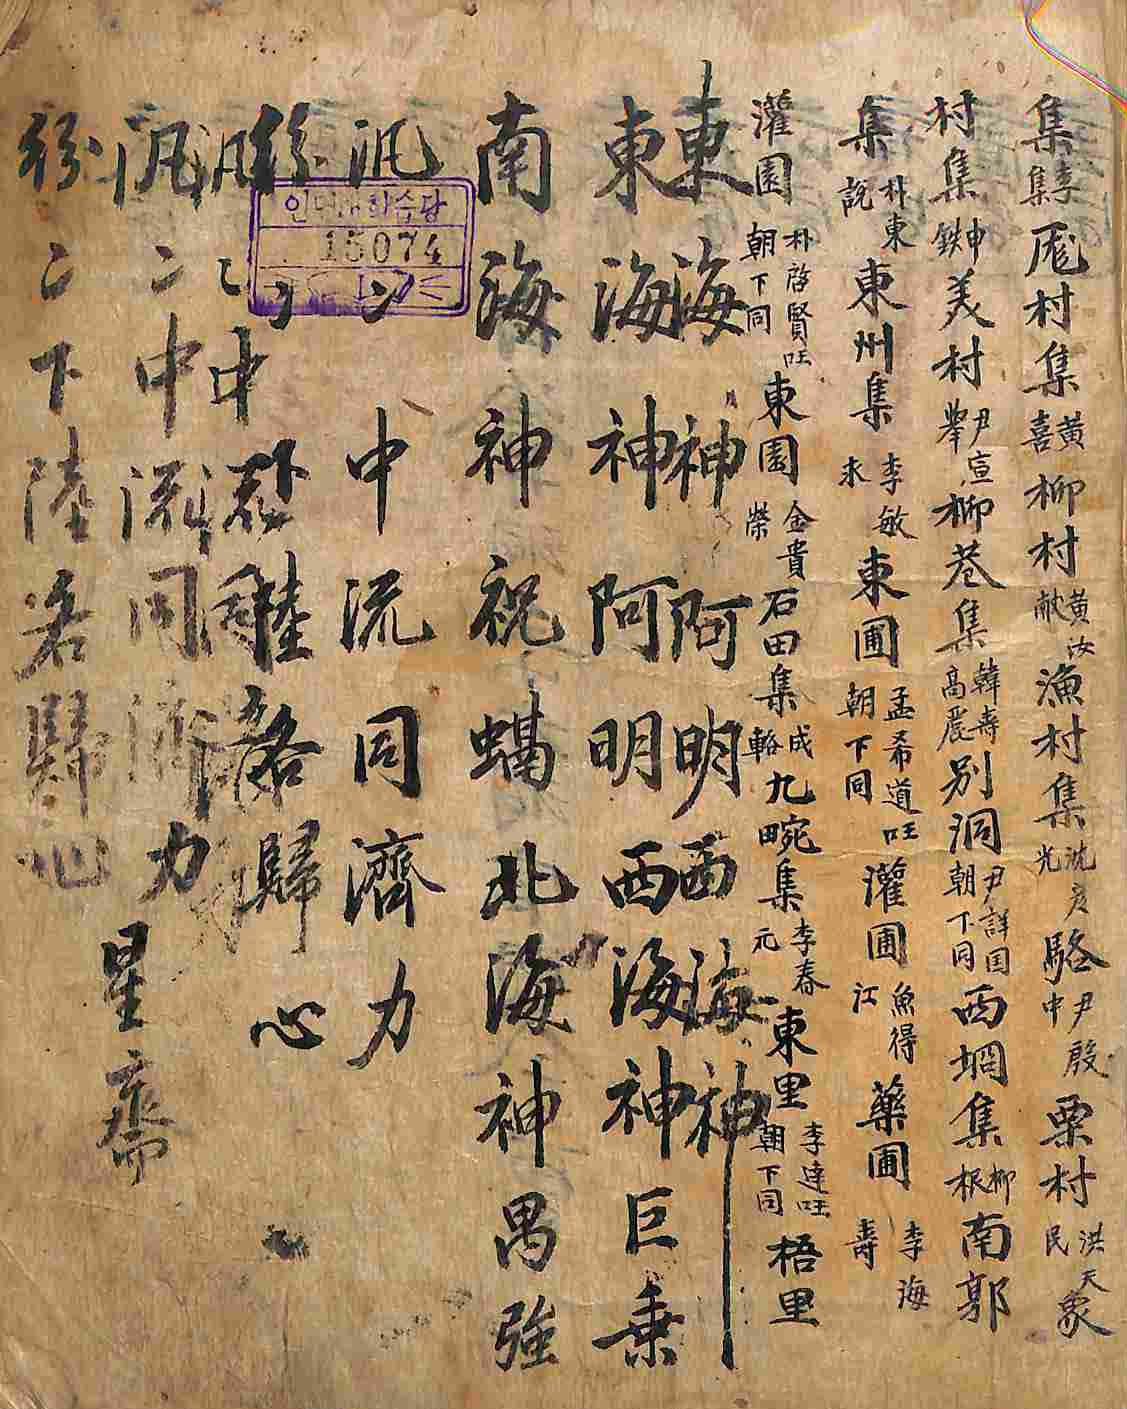 集李集厖村集黃喜柳村黃汝献漁村集沈彦光駱尹殷中栗村洪天民象
村集申鉄美村尹宣擧柳巷集韓壽高農別洞尹詳国朝下同西坰集柳根南郭
集朴東說東州集李敏求東圃孟希道旺朝下同灌圃魚得江藥圃李海壽
灌園朴啓賢旺朝下同東園金貴榮石田集成輅九畹集李春元東里李達旺朝下同梧里
東海神阿明西海神
東海神阿明西海神巨乗
南海神祝蠋北海神禺強
汎〻中流同濟力
紛〻下陸各歸心
汎〻中流同濟力
紛〻下陸各歸心
星齋
15074